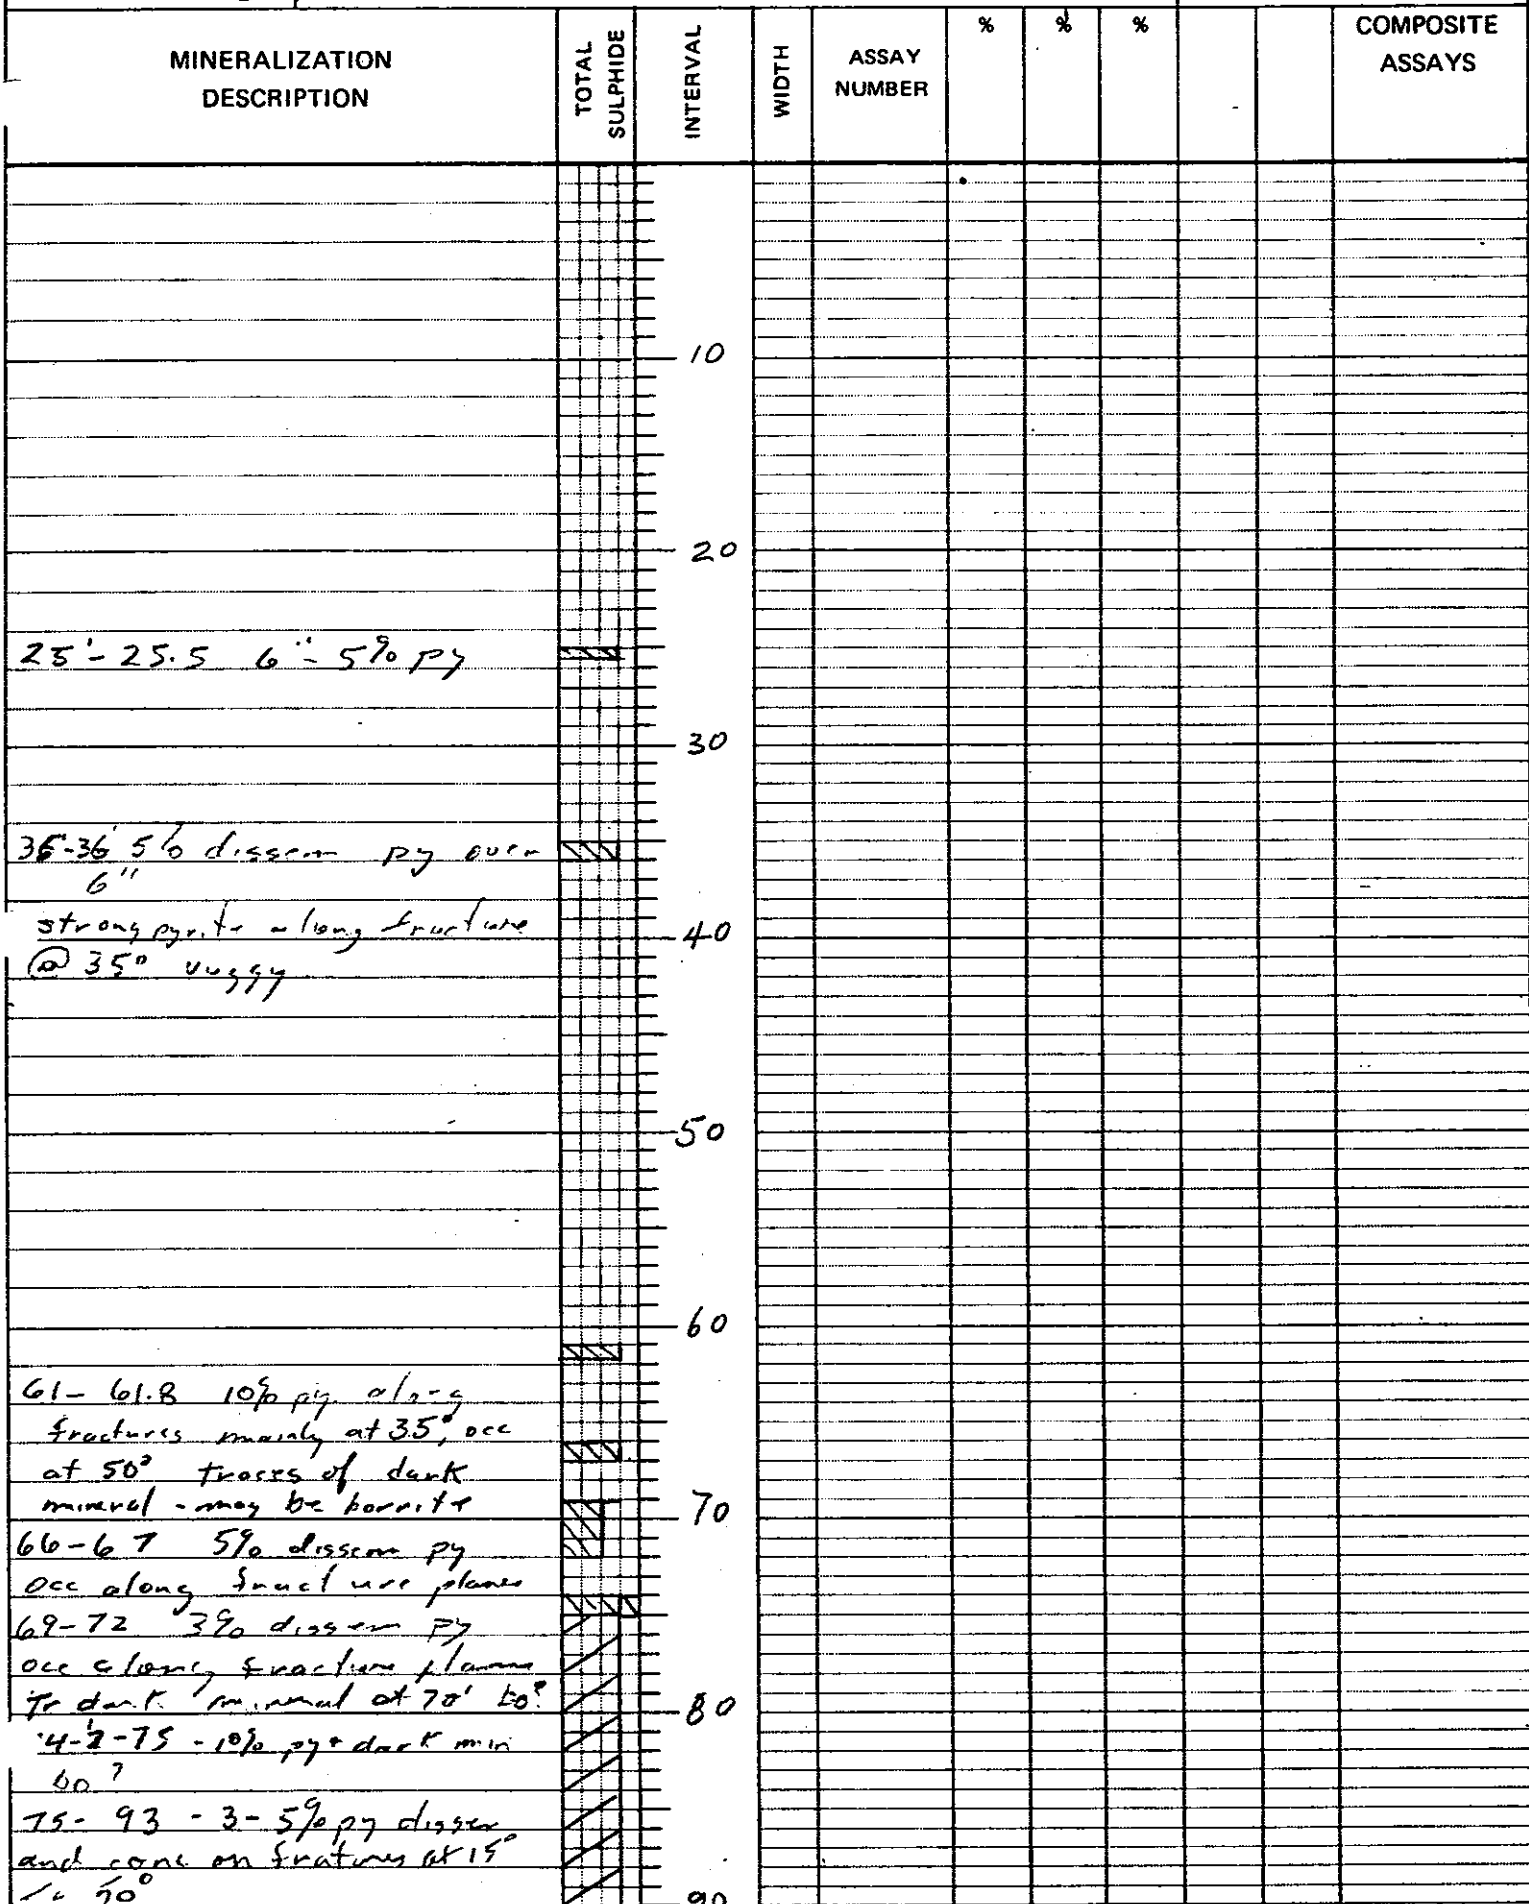 MINERALIZATION
DESCRIPTION
TOTAL
SULPHIDE
INTERVAL
WIDTH
ASSAY
NUMBER
%
%
%
COMPOSITE
ASSAYS
10
20
25'-25.5 6"- 5% py
30
35-36 5% dissem py over
6"
strong pyrite along fracture
@ 35° vuggy
40
50
60
61- 61.8 10% py along
fractures mainly at 35°, occ
at 50° traces of dark
mineral - may be bornite
70
66-67 5% dissem py
occ along fracture planes
69-72 3% dissem py
occ along fracture planes
Tr dark mineral at 70' bo?
80
-75 - 10% py + dark min
bo?
75- 93 - 3-5% py dissem
and conc on fratures at 15°
70°
90